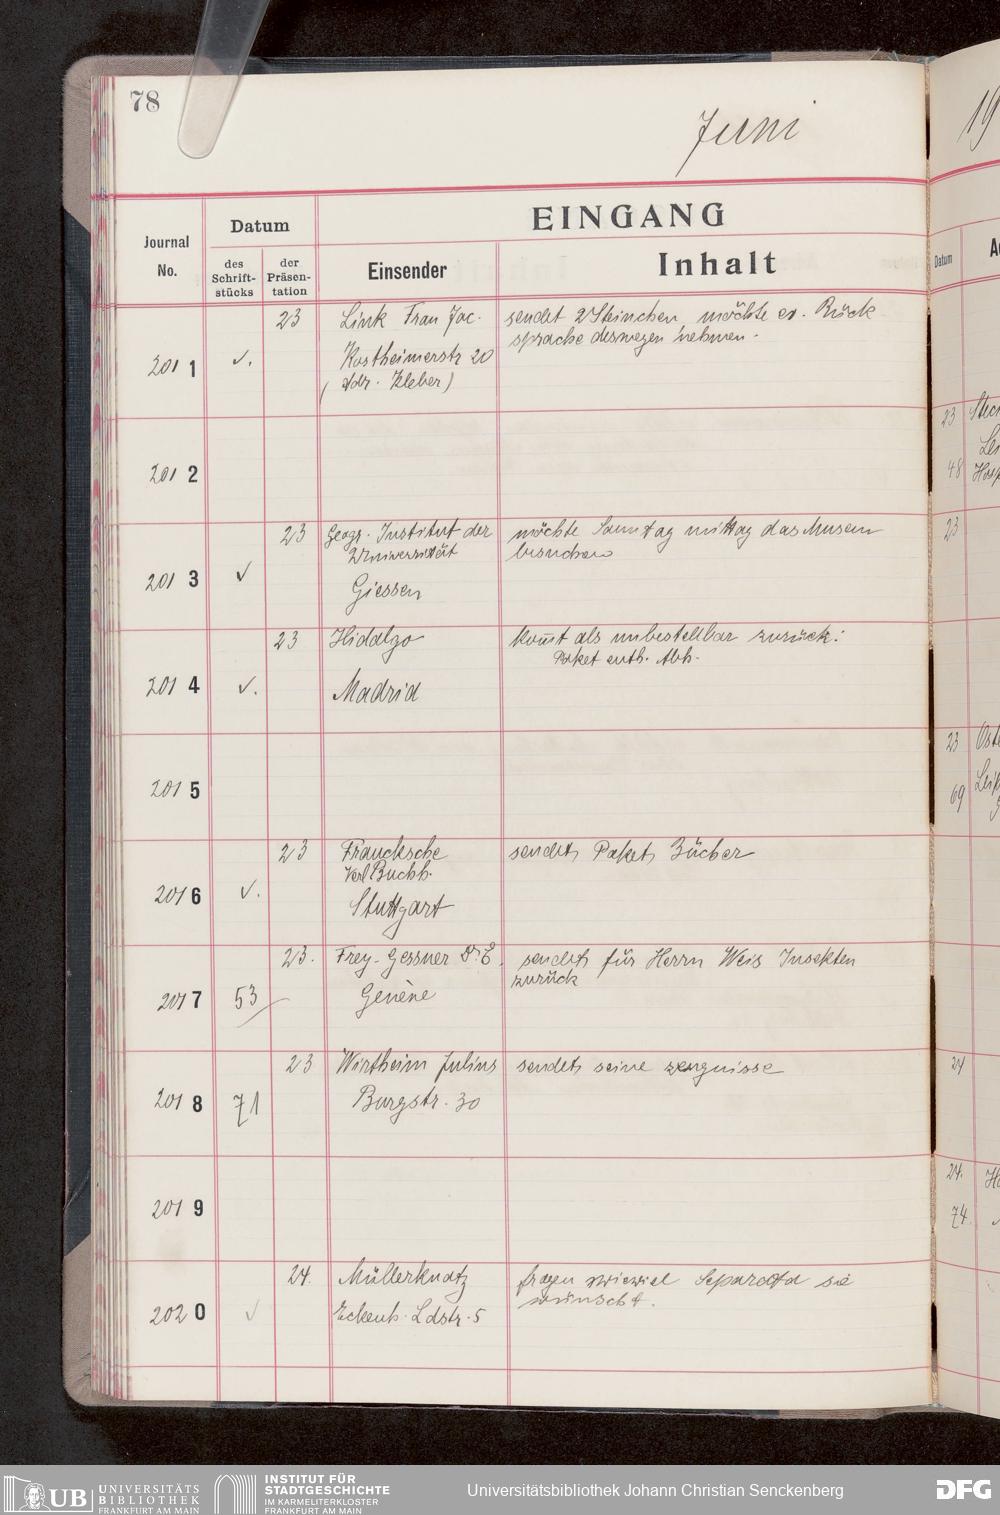 78
Juni
19
EINGANG
Journal
No.
Datum
des
Schrift-
stücks
der
Präsen-
tation
Einsender
Inhalt
Datum
201 1
✓.
23
Link Frau Jac.
Kostheimerstr 20
(Adr. Kleber)
sendet 2 Steinchen möchte ev. Rück
sprache deswegen nehmen.
201 2
201 3
✓
23
Geogr. Institut der
Universität
Giessen
möchte Samstag mittag das Museum
besuchen
201 4
✓.
23
Hidalgo
Madrid
kom̄t als unbestellbar zurück:
Paket enth. Abh.
201 5
201 6
✓.
23
Francksche
Verl Buchh.
Stuttgart
sendet Paket Bücher
201 7
53
23.
Frey-Gessner Dr E.
Genène
sendet für Herrn Weis Insekten
zurück
201 8
71
23
Wirtheim Julius
Burgstr. 30
sendet seine zeugnisse
201 9
202 0
✓
24.
Müllerknatz
Eckenh. Ldstr. 5
fragen wieviel Separata sie
wünscht.
23
48
23
23
69
24
24.
74
UB UNIVERSITÄTS
BIBLIOTHEK
FRANKFURT AM MAIN
INSTITUT FÜR
STADTGESCHICHTE
IM KARMELITERKLOSTER
FRANKFURT AM MAIN
Universitätsbibliothek Johann Christian Senckenberg
DFG